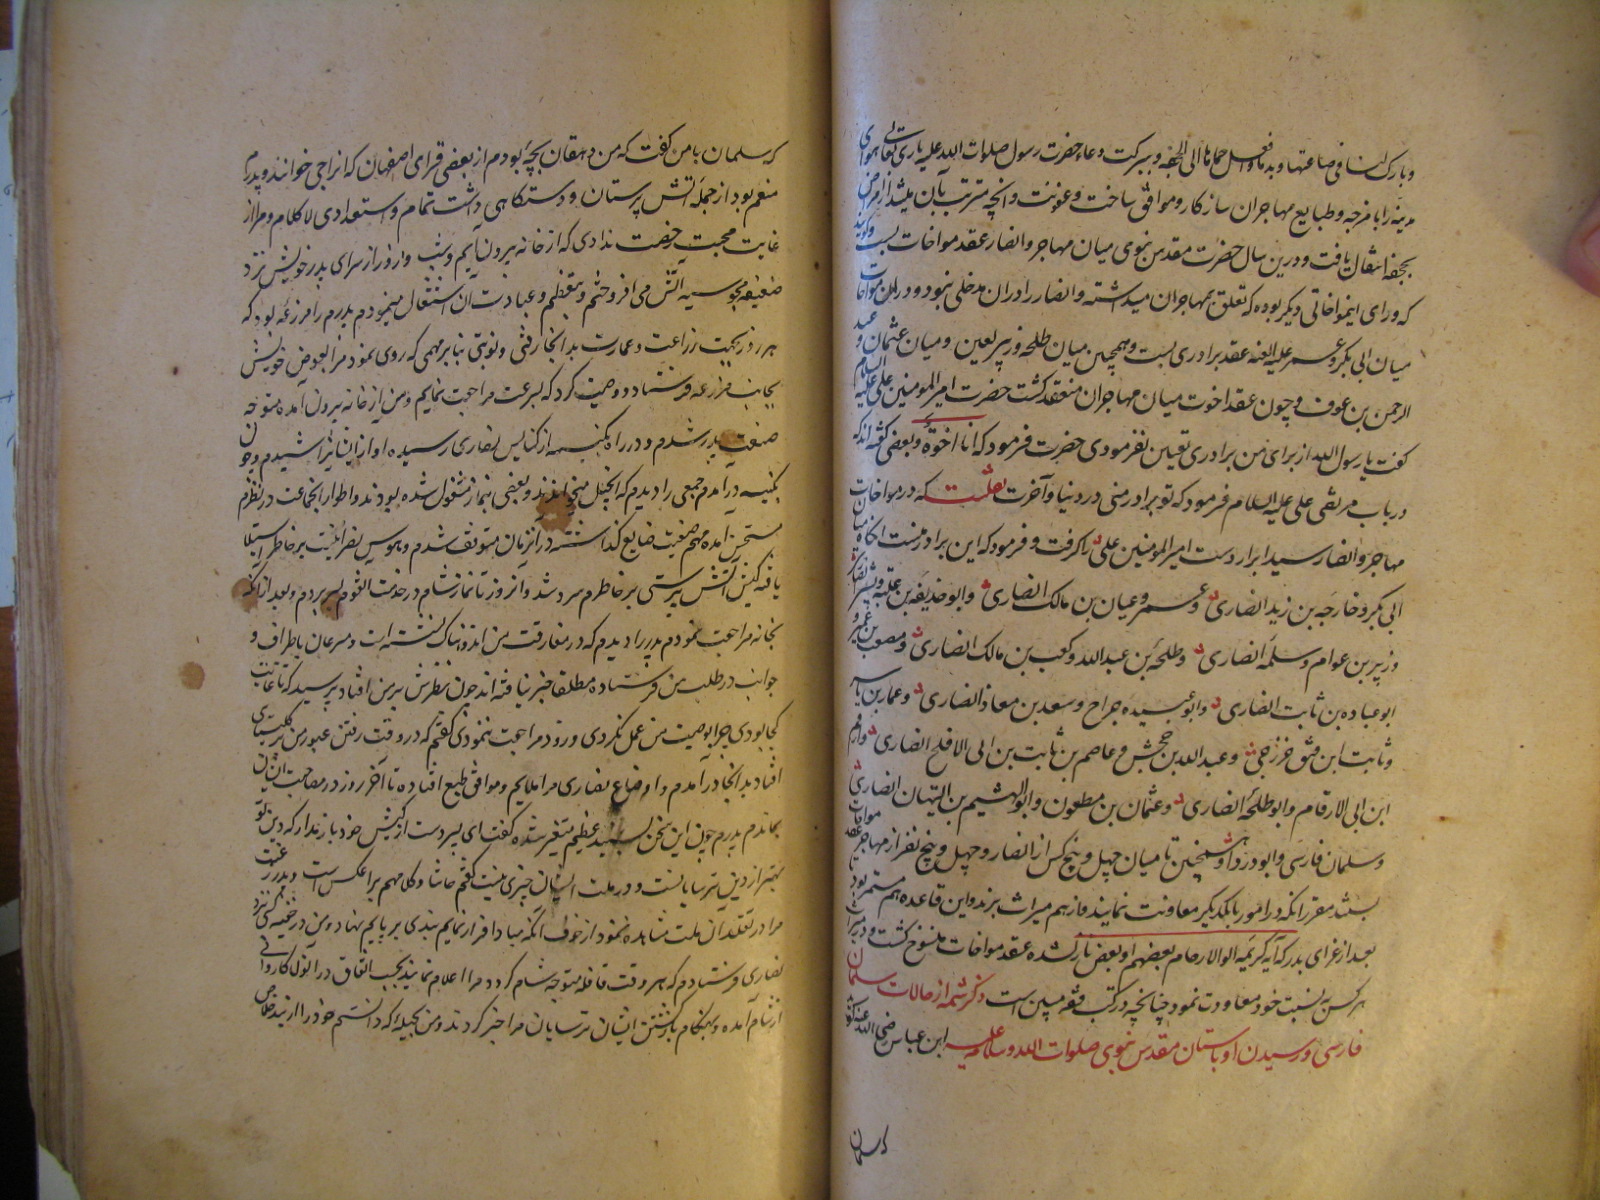 و بارک لنا فی صاعها و مدها و انقل حماها الی الجحفه و ببرکت دعاء حضرت رسول صلوات الله علیه باری تعالی هوای
مدینه را با مزجه و طبایع مهاجران سازکار و موافق ساخت و عفونت و انچه مترتب بآن میشد از امراض
بجحفه انتقال یافت و درین سال حضرت مقدس نبوی میان مهاجر و انصار عقد مواخات بست و کویند
که ورای این مواخاتی دیکر بوده که تعلق بمهاجران میداشته و انصار را دران مدخلی نبود و دران مواخات
میان ابی بکر و عمر علیه العنه عقد برادری بست و همچنین میان طلحه و زبیر لعین و میان عثمان و عبد
الرحمن بن عوف و چون عقد اخوت میان مهاجران منعقد کشت حضرت امیر المومنین علی علیه السلام
کفت یا رسول الله از برای من برادری تعیین نفرمودی حضرت فرمود که انا اخوک و بعضی کفته اند که
در باب مرتضی علی علیه السلام فرمود که تو برادر منی در دنیا و آخرت که در مواخات
مهاجر و انصار سید ابرار دست امیر المومنین علی را کرفت و فرمود که این برادر منست انکاه میان
ابی بکر و خارجه بن زید انصاری و عمر و عتبان بن مالک انصاری و ابو حذیفه بن عتبه و
و زبیر بن عوام و سلمه انصاری و طلحه بن عبد الله و کعب بن مالک انصاری و مصعب بن عمیر و
ابو عباده بن ثابت انصاری و ابو عبیده جراح و سعد بن معاذ انصاری و عمار بن یاسر
و ثابت ابن قیس خزرجی و عبد الله بن جحش و عاصم بن ثابت بن ابی الاقلح انصاری و ارقم
ابن ابی الارقام و ابو طلحه انصاری و عثمان بن مظعون و ابو الهیثم بن التیهان انصاری
و سلمان فارسی و ابو دردا و همچنین تا میان چهل و پنج کس از انصار و چهل و پنج نفر از مهاجر عقد مواخات
بستند مقرر انکه در امور با یکدیکر معاونت نمایند و از هم میراث برند و این قاعده هم مستمر بود
بعد از غزای بدر که آیه کریمه اولو الارحام بعضهم اولی بعض نازل شده عقد مواخات منسوخ کشت و در میراث
هر کس به نسبت خود معاودت نمود چنانچه در کتب فقه مبین است ذکر شمه از حالات سلمان
فارسی و رسیدن او باستان مقدس نبوی صلوات الله و سلامه علیه ابن عباس رضی الله عنه کوید
که سلمان
که سلمان با من کفت که من دهقان بچه بودم از بعضی قرای اصفهان که انرا جی خوانند و پدرم
منعم بود از جمله آتش پرستان و دستکاهی داشت تمام و استعدادی لا کلام و مرا از
غایت محبت رخصت ندادی که از خانه بیرون آیم و شب و روز از سرای پدر خویش نزد
مجوسیه آتش می افروختم و بتعظیم و عبادت آن اشتغال مینمودم پدرم را مزرعه بود که
هر روز بجهت زراعت و عمارت بدانجا رفتی و نوبتی بنا بر مهمی که روی نمود مرا بعوض خویش
بجانب مزرعه فرستاد و وصیت کرد که بسرعت مراجعت نمایم و من از خانه بیرون آمده متوجه
پدر شدم و در راه بکنیسه از کنایس نصاری رسیده اواز ایشان را شنیدم و چون
بکنیسه درآمدم جمعی را دیدم که انجیل میخواندند و بعضی بنماز مشغول شده بودند و اطوار انجماعت در نظرم
مستحسن آمده مهم ضیعت ضایع کذاشته در آنزمان متوقف شدم و هوس نصرانیت بر خاطرم استیلا
یافته کیش آتش پرستی بر خاطرم سرد شد و آنروز تا نماز شام در خدمت القوم بسر بردم و بعد از آنکه
بخانه مراجعت نمودم پدر را دیدم که در مفارقت من اندوهناک نشسته است و مسرعان باطراف و
جوانب در طلب من فرستاده مطلقا خبر نیافته اند چون نظرش بر من افتاد پرسید که تا غایت
کجا بودی چرا بوصیت من عمل نکردی و زود مراجعت ننمودی کفتم که در وقت رفتن عبور من بر کلیسیای
افتاد بدانجا درآمدم و اوضاع نصاری مرا ملایم و موافق طبع افتاده تا آخر روز در مصاحبت ایشان
بماندم پدرم چون این سخن بشنید عظیم متغیر شده کفت ای پسر دست از کیش خود باز ندار که دین تو
بهتر از دین ترسایانست و در ملت ایشان چیزی نیست کفتم حاشا و کلا مهم بر عکس است و پدر رغبت
مرا در تقلد آن ملت مشاهده نمود از خوف آنکه مبادا فرار نمایم بندی بر پایم نهاد و من در خفیه کس نزد
نصاری فرستادم که هر وقت قافله متوجه شام کردد مرا اعلام نمایند بحسب اتفاق در انولا کاروانی
از شام آمده و بهنکام بازکشتن ایشان ترسایان مرا خبر کردند و من بحیله که دانستم خود را از بند خلاص